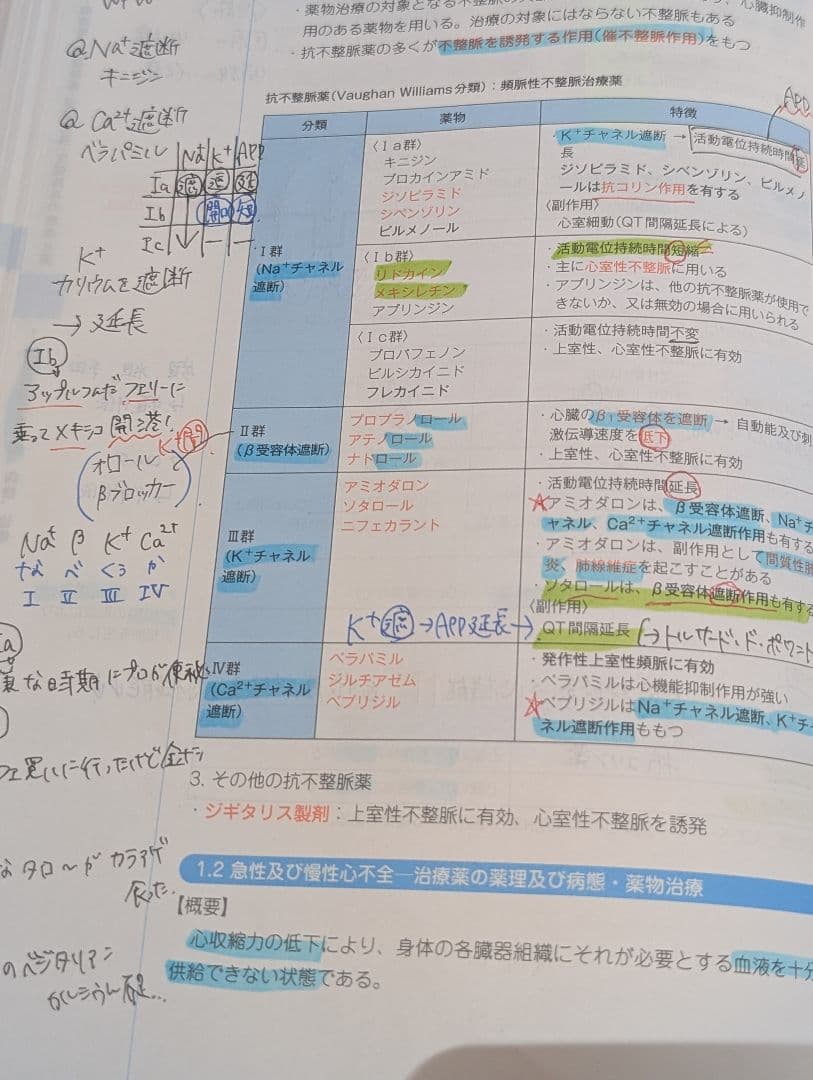 ・薬物治療の対象となる不整脈
用のある薬物を用いる。治療の対象にはならない不整脈もある
心臓抑制作
・抗不整脈薬の多くが不整脈を誘発する作用(催不整脈作用)をもつ
抗不整脈薬(Vaughan Williams分類):頻脈性不整脈治療薬
分類
薬物
特徴
APD
Ⅰ群
(Na⁺チャネル
遮断)
〈Ⅰa群〉
キニジン
プロカインアミド
ジソピラミド
シベンゾリン
ピルメノール
・K⁺チャネル遮断 → 活動電位持続時間延
長
ジソピラミド、シベンゾリン、ピルメノ
ールは抗コリン作用を有する
〈副作用〉
心室細動(QT間隔延長による)
〈Ⅰb群〉
リドカイン
メキシレチン
アプリンジン
・活動電位持続時間短縮
・主に心室性不整脈に用いる
・アプリンジンは、他の抗不整脈薬が使用で
きないか、又は無効の場合に用いられる
〈Ⅰc群〉
プロパフェノン
ピルシカイニド
フレカイニド
・活動電位持続時間不変
・上室性、心室性不整脈に有効
Ⅱ群
(β受容体遮断)
プロプラノロール
アテノロール
ナドロール
・心臓のβ₁受容体を遮断 → 自動能及び刺
激伝導速度を低下
・上室性、心室性不整脈に有効
Ⅲ群
(K⁺チャネル
遮断)
アミオダロン
ソタロール
ニフェカラント
・活動電位持続時間延長
・アミオダロンは、β受容体遮断、Na⁺チ
ャネル、Ca²⁺チャネル遮断作用も有する
・アミオダロンは、副作用として間質性肺
炎、肺線維症を起こすことがある
・ソタロールは、β受容体遮断作用も有する
〈副作用〉
QT間隔延長
K⁺遮→APD延長→
→トルサード・ド・ポワント
Ⅳ群
(Ca²⁺チャネル
遮断)
ベラパミル
ジルチアゼム
ベプリジル
・発作性上室性頻脈に有効
・ベラパミルは心機能抑制作用が強い
・ベプリジルはNa⁺チャネル遮断、K⁺チャ
ネル遮断作用ももつ
3. その他の抗不整脈薬
・ジギタリス製剤:上室性不整脈に有効、心室性不整脈を誘発
1.2 急性及び慢性心不全―治療薬の薬理及び病態・薬物治療
【概要】
心収縮力の低下により、身体の各臓器組織にそれが必要とする血液を十分
供給できない状態である。
@Na⁺遮断
キニジン
@Ca²⁺遮断
ベラパミル
Na⁺ K⁺ APD
Ia 遮 遮 延
Ib 開 短
Ic ↓ ー ー
K⁺
カリウムを遮断
→延長
Ib
アップルつんだフェリーに
乗ってメキシコ開港!
K⁺開口
オロール
βブロッカー
Na⁺ β K⁺ Ca²⁺
な べ くう か
I II III IV
な時期にプロが便秘
買いに行ったけど金欠
なタローがカラアゲ
のベジタリアン
カルシウム不足…